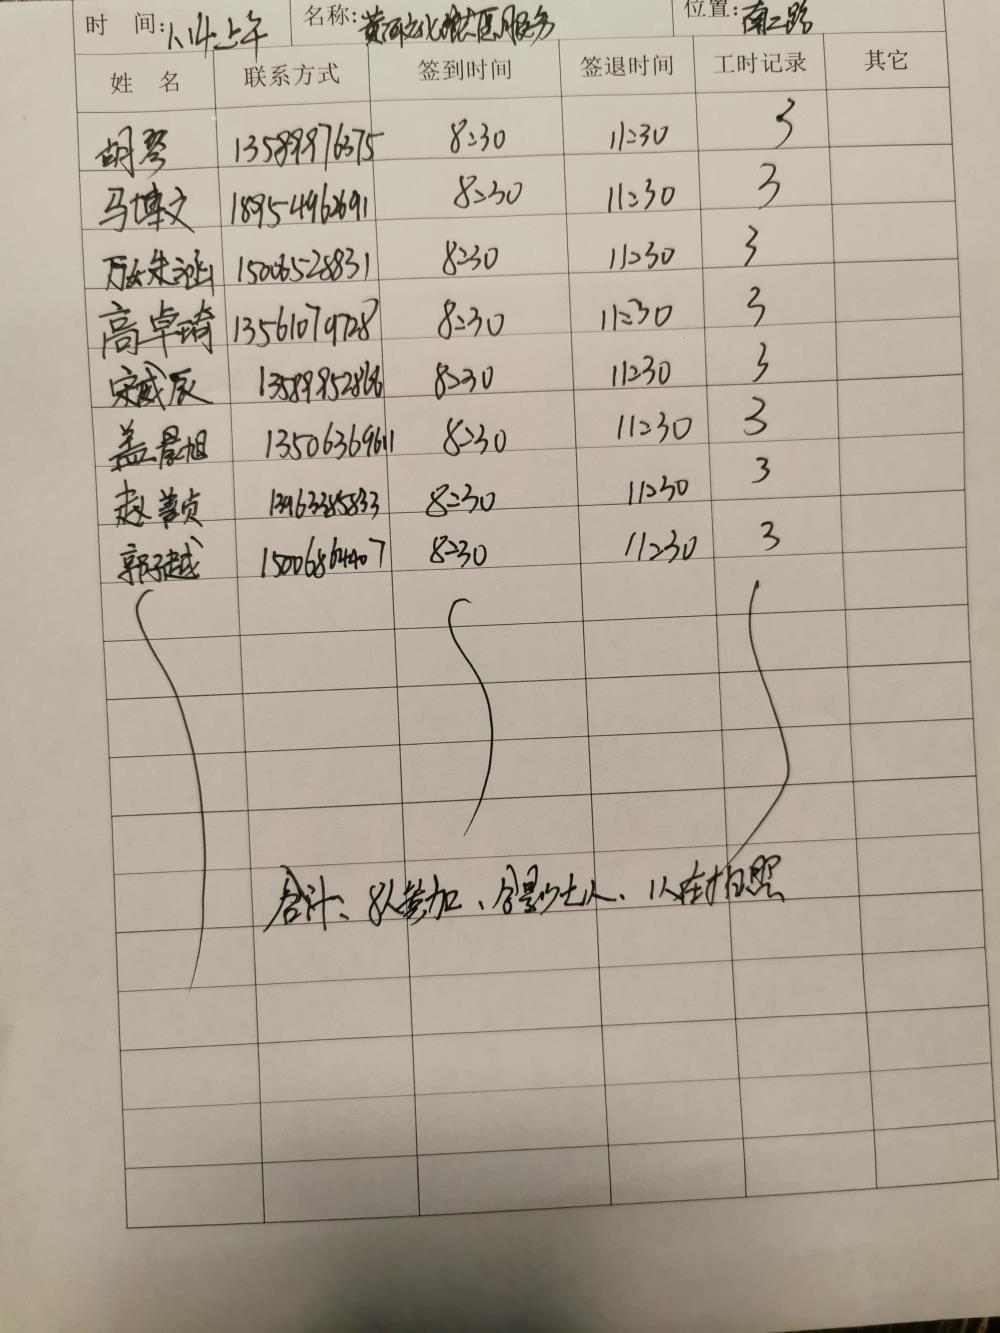 时 间: 1.14上午 名称: 黄河文化 服务 位置: 南二路
姓 名 联系方式 签到时间 签退时间 工时记录 其它
胡琴 13589976375 8:30 11:30 3
马博文 18954962691 8:30 11:30 3
万 朱涵 15006528831 8:30 11:30 3
高卓琦 13561079728 8:30 11:30 3
宋威辰 13589952868 8:30 11:30 3
盖晨旭 13506369611 8:30 11:30 3
赵善贞 13963385833 8:30 11:30 3
郭子越 15006864407 8:30 11:30 3
合计、8人参加、合影少七人、1人在拍照